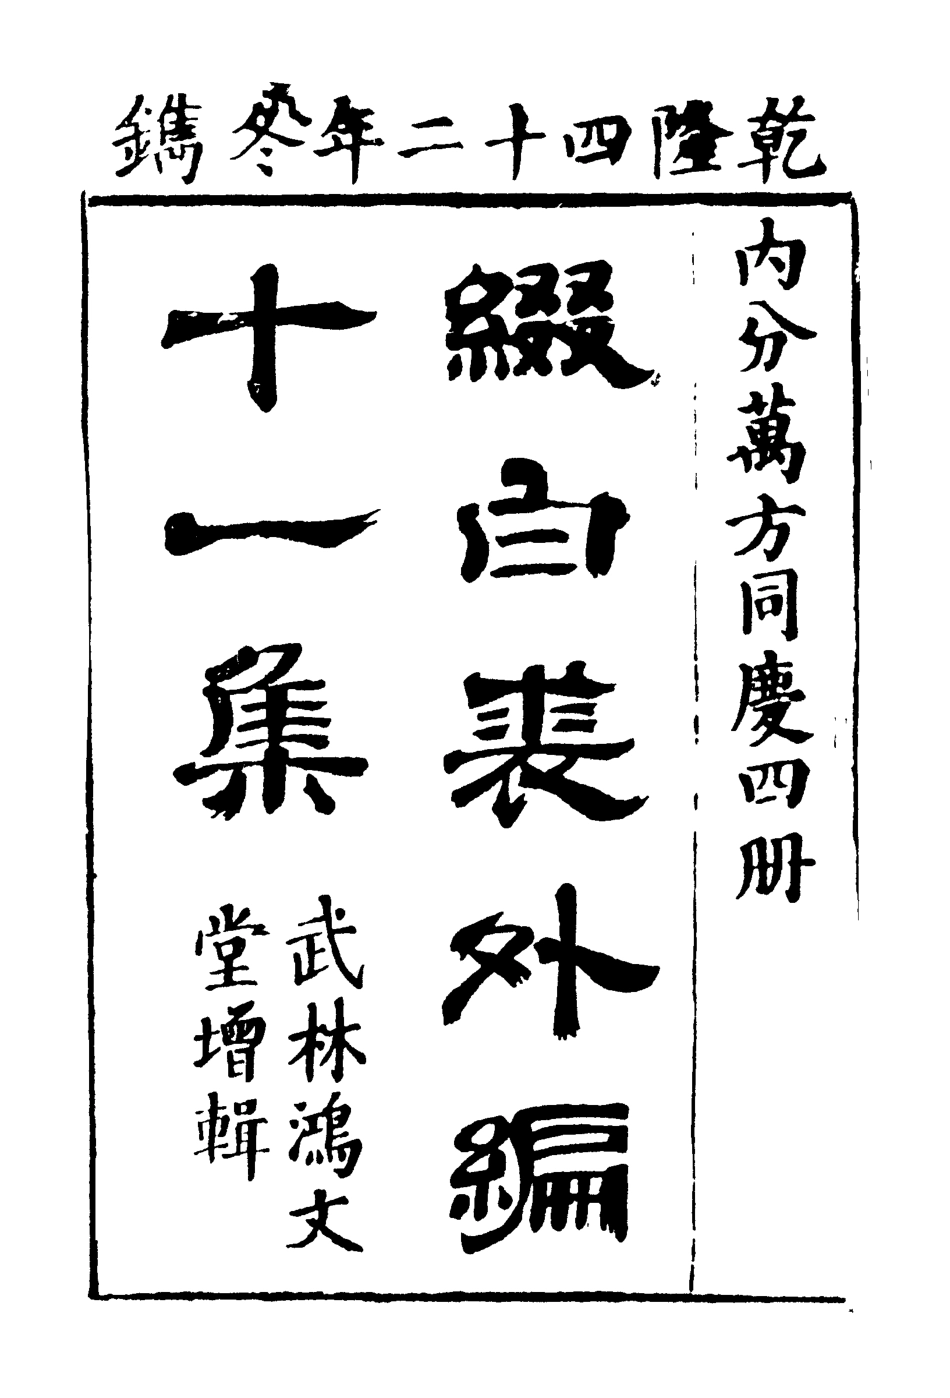 乾隆四十二年冬鐫
內分萬方同慶四册
綴白裘外編
十一集
武林鴻文
堂增輯